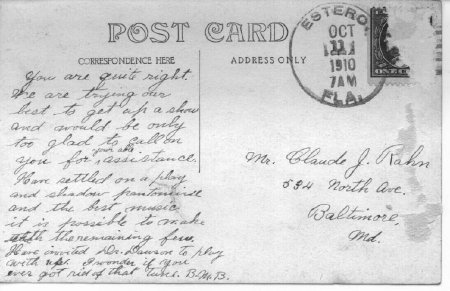 POST CARD
CORRESPONDENCE HERE
ADDRESS ONLY
ESTERO
OCT
11
1910
7AM
FLA.
ONE
You are quite right.
We are trying our
best to get up a show
and would be only
too glad to call on
your able
you for assistance.
Have settled on a play
and shadow pantomime
and the best music
it is possible to make
with the remaining few.
Have invited Dr. Dawson to play
with us. I wonder if you
ever got rid of that tune. B.M.B.
Mr. Claude J. Rahn
594 North Ave.
Baltimore,
Md.